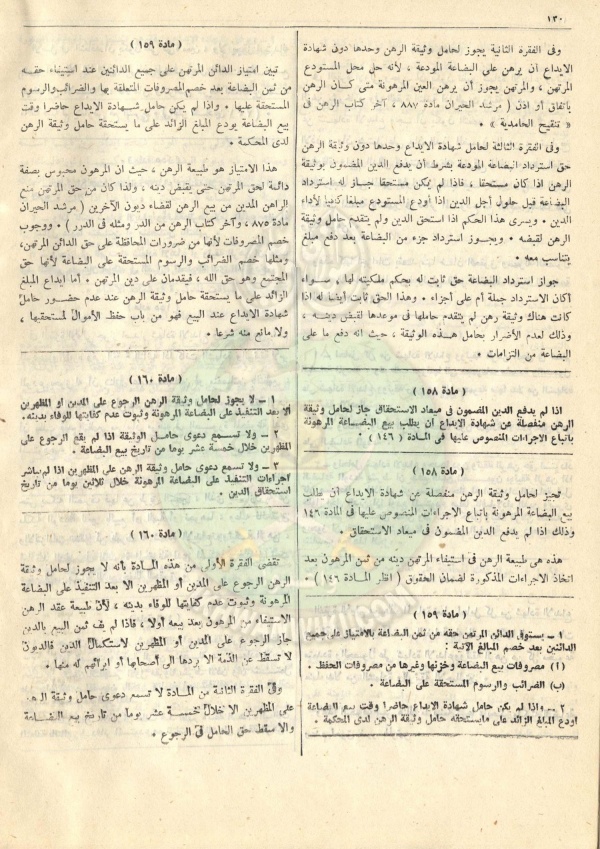 ١٣٠
وفى الفقرة الثانية يجوز لحامل وثيقة الرهن وحدها دون شهادة
الايداع أن يرهن على البضاعة المودعة ، لأنه حل محل المستودع
المرتهن ، والمرتهن يجوز أن يرهن العين المرهونة متى كان الرهن
باتفاق أو اذن ( مرشد الحيران مادة ٨٨٧ ، آخر كتاب الرهن فى
« تنقيح الحامدية » •
وفى الفقرة الثالثة لحامل شهادة الايداع وحدها دون وثيقة الرهن
حق استرداد البضاعة المودعة بشرط أن يدفع الدين المضمون بوثيقة
الرهن اذا كان مستحقا ، فاذا لم يكن مستحقا جاز له استرداد
البضاعة قبل حلول أجل الدين إذا أودع المستودع مبلغا كافيا لأداء
الدين • ويسرى هذا الحكم اذا استحق الدين ولم يتقدم حامل وثيقة
الرهن لقبضه • ويجوز استرداد جزء من البضاعة بعد دفع مبلغ
يتناسب معه •
جواز استرداد البضاعة حق ثابت له بحكم ملكيته لها ، سواء
أكان الاسترداد جملة أم على أجزاء • وهذا الحق ثابت أيضا له اذا
كانت هناك وثيقة رهن لم يتقدم حاملها فى موعدها لقبض دينه ،
وذلك لعدم الأضرار بحامل هذه الوثيقة ، حيث انه دفع ما على
البضاعة من التزامات •
( مادة ١٥٨ )
اذا لم يدفع الدين المضمون فى ميعاد الاستحقاق جاز لحامل وثيقة
الرهن منفصلة عن شهادة الايداع أن يطلب بيع البضاعة المرهونة
باتباع الاجراءات المنصوص عليها فى المادة ( ١٤٦ ) •
( مادة ١٥٨ )
تجيز لحامل وثيقة الرهن منفصلة عن شهادة الايداع أن يطلب
بيع البضاعة المرهونة باتباع الاجراءات المنصوص عليها فى المادة ١٤٦
وذلك اذا لم يدفع الدين المضمون فى ميعاد الاستحقاق •
هذه هى طبيعة الرهن فى استيفاء المرتهن دينه من ثمن المرهون بعد
اتخاذ الاجراءات المذكورة لضمان الحقوق ( انظر المادة ١٤٦ )
( مادة ١٥٩ )
١ – يستوفى الدائن المرتهن حقه من ثمن البضاعة بالامتياز على جميع
الدائنين بعد خصم المبالغ الآتية :
(أ) مصروفات بيع البضاعة وخزنها وغيرها من مصروفات الحفظ •
(ب) الضرائب والرسوم المستحقة على البضاعة •
٢ – واذا لم يكن حامل شهادة الايداع حاضرا وقت بيع البضاعة
أودع المبلغ الزائد على مايستحقه حامل وثيقة الرهن لدى المحكمة •
( مادة ١٥٩ )
تبين امتياز الدائن المرتهن على جميع الدائنين عند استيفاء حقه
من ثمن البضاعة بعد خصم المصروفات المتعلقة بها والضرائب والرسوم
المستحقة عليها • واذا لم يكن حامل شهادة الايداع حاضرا وقت
بيع البضاعة يودع المبلغ الزائد على ما يستحقة حامل وثيقة الرهن
لدى المحكمة •
هذا الامتياز هو طبيعة الرهن ، حيث ان المرهون محبوس بصفة
دائمة لحق المرتهن حتى يقبض دينه ، ولذا كان من حق المرتهن منع
الراهن المدين من بيع الرهن لقضاء ديون الآخرين ( مرشد الحيران
مادة ٨٧٥ ، وآخر كتاب الرهن من الدر ومثله فى الدرر ) • ووجوب
خصم المصروفات لأنها من ضرورات المحافظة على حق الدائن المرتهن،
ومثلها خصم الضرائب والرسوم المستحقة على البضاعة لأنها حق
المجتمع وهو حق الله ، فيقدمان على دين المرتهن • أما ايداع المبلغ
الزائد على ما يستحقة حامل وثيقة الرهن عند عدم حضور حامل
شهادة الايداع عند البيع فهو من باب حفظ الأموال لمستحقيها ،
ولا مانع منه شرعا •
( مادة ١٦٠ )
١ – لا يجوز لحامل وثيقة الرهن الرجوع على المدين أو المظهرين
الا بعد التنفيذ على البضاعة المرهونة وثبوت عدم كفايتها للوفاء بدينه.
٢ – ولا تسمع دعوى حامل الوثيقة اذا لم يقع الرجوع على
المظهرين خلال خمسة عشر يوما من تاريخ بيع البضاعة •
٣ – ولا تسمع دعوى حامل وثيقة الرهن على المظهرين اذا لم يباشر
اجراءات التنفيذ على البضاعة المرهونة خلال ثلاثين يوما من تاريخ
استحقاق الدين •
( مادة ١٦٠ )
تقضى الفقرة الأولى من هذه المادة بأنه لا يجوز لحامل وثيقة
الرهن الرجوع على المدين أو المظهرين الا بعد التنفيذ على البضاعة
المرهونة وثبوت عدم كفايتها للوفاء بدينه ، لأن طبيعة عقد الرهن
الاستيفاء من المرهون بعد بيعه أولا ، فاذا لم يف ثمن البيع بالدين
جاز الرجوع على المدين أو المظهرين لاستكمال الدين فالديون
لا تسقط عن الذمة الا بردها الى أصحابها أو ابرائهم له منها •
وفى الفقرة الثانية من المادة لا تسمع دعوى حامل وثيقة الرهن
على المظهرين الا خلال خمسة عشر يوما من تاريخ بيع البضاعة
والا سقط حق الحامل فى الرجوع •